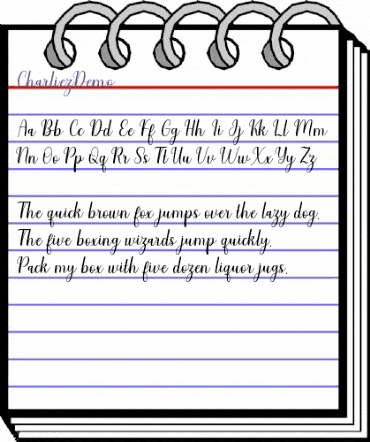 CharliezDemo
Aa Bb Cc Dd Ee Ff Gg Hh Ii Jj Kk Ll Mm
Nn Oo Pp Qq Rr Ss Tt Uu Vv Ww Xx Yy Zz
The quick brown fox jumps over the lazy dog.
The five boxing wizards jump quickly.
Pack my box with five dozen liquor jugs.